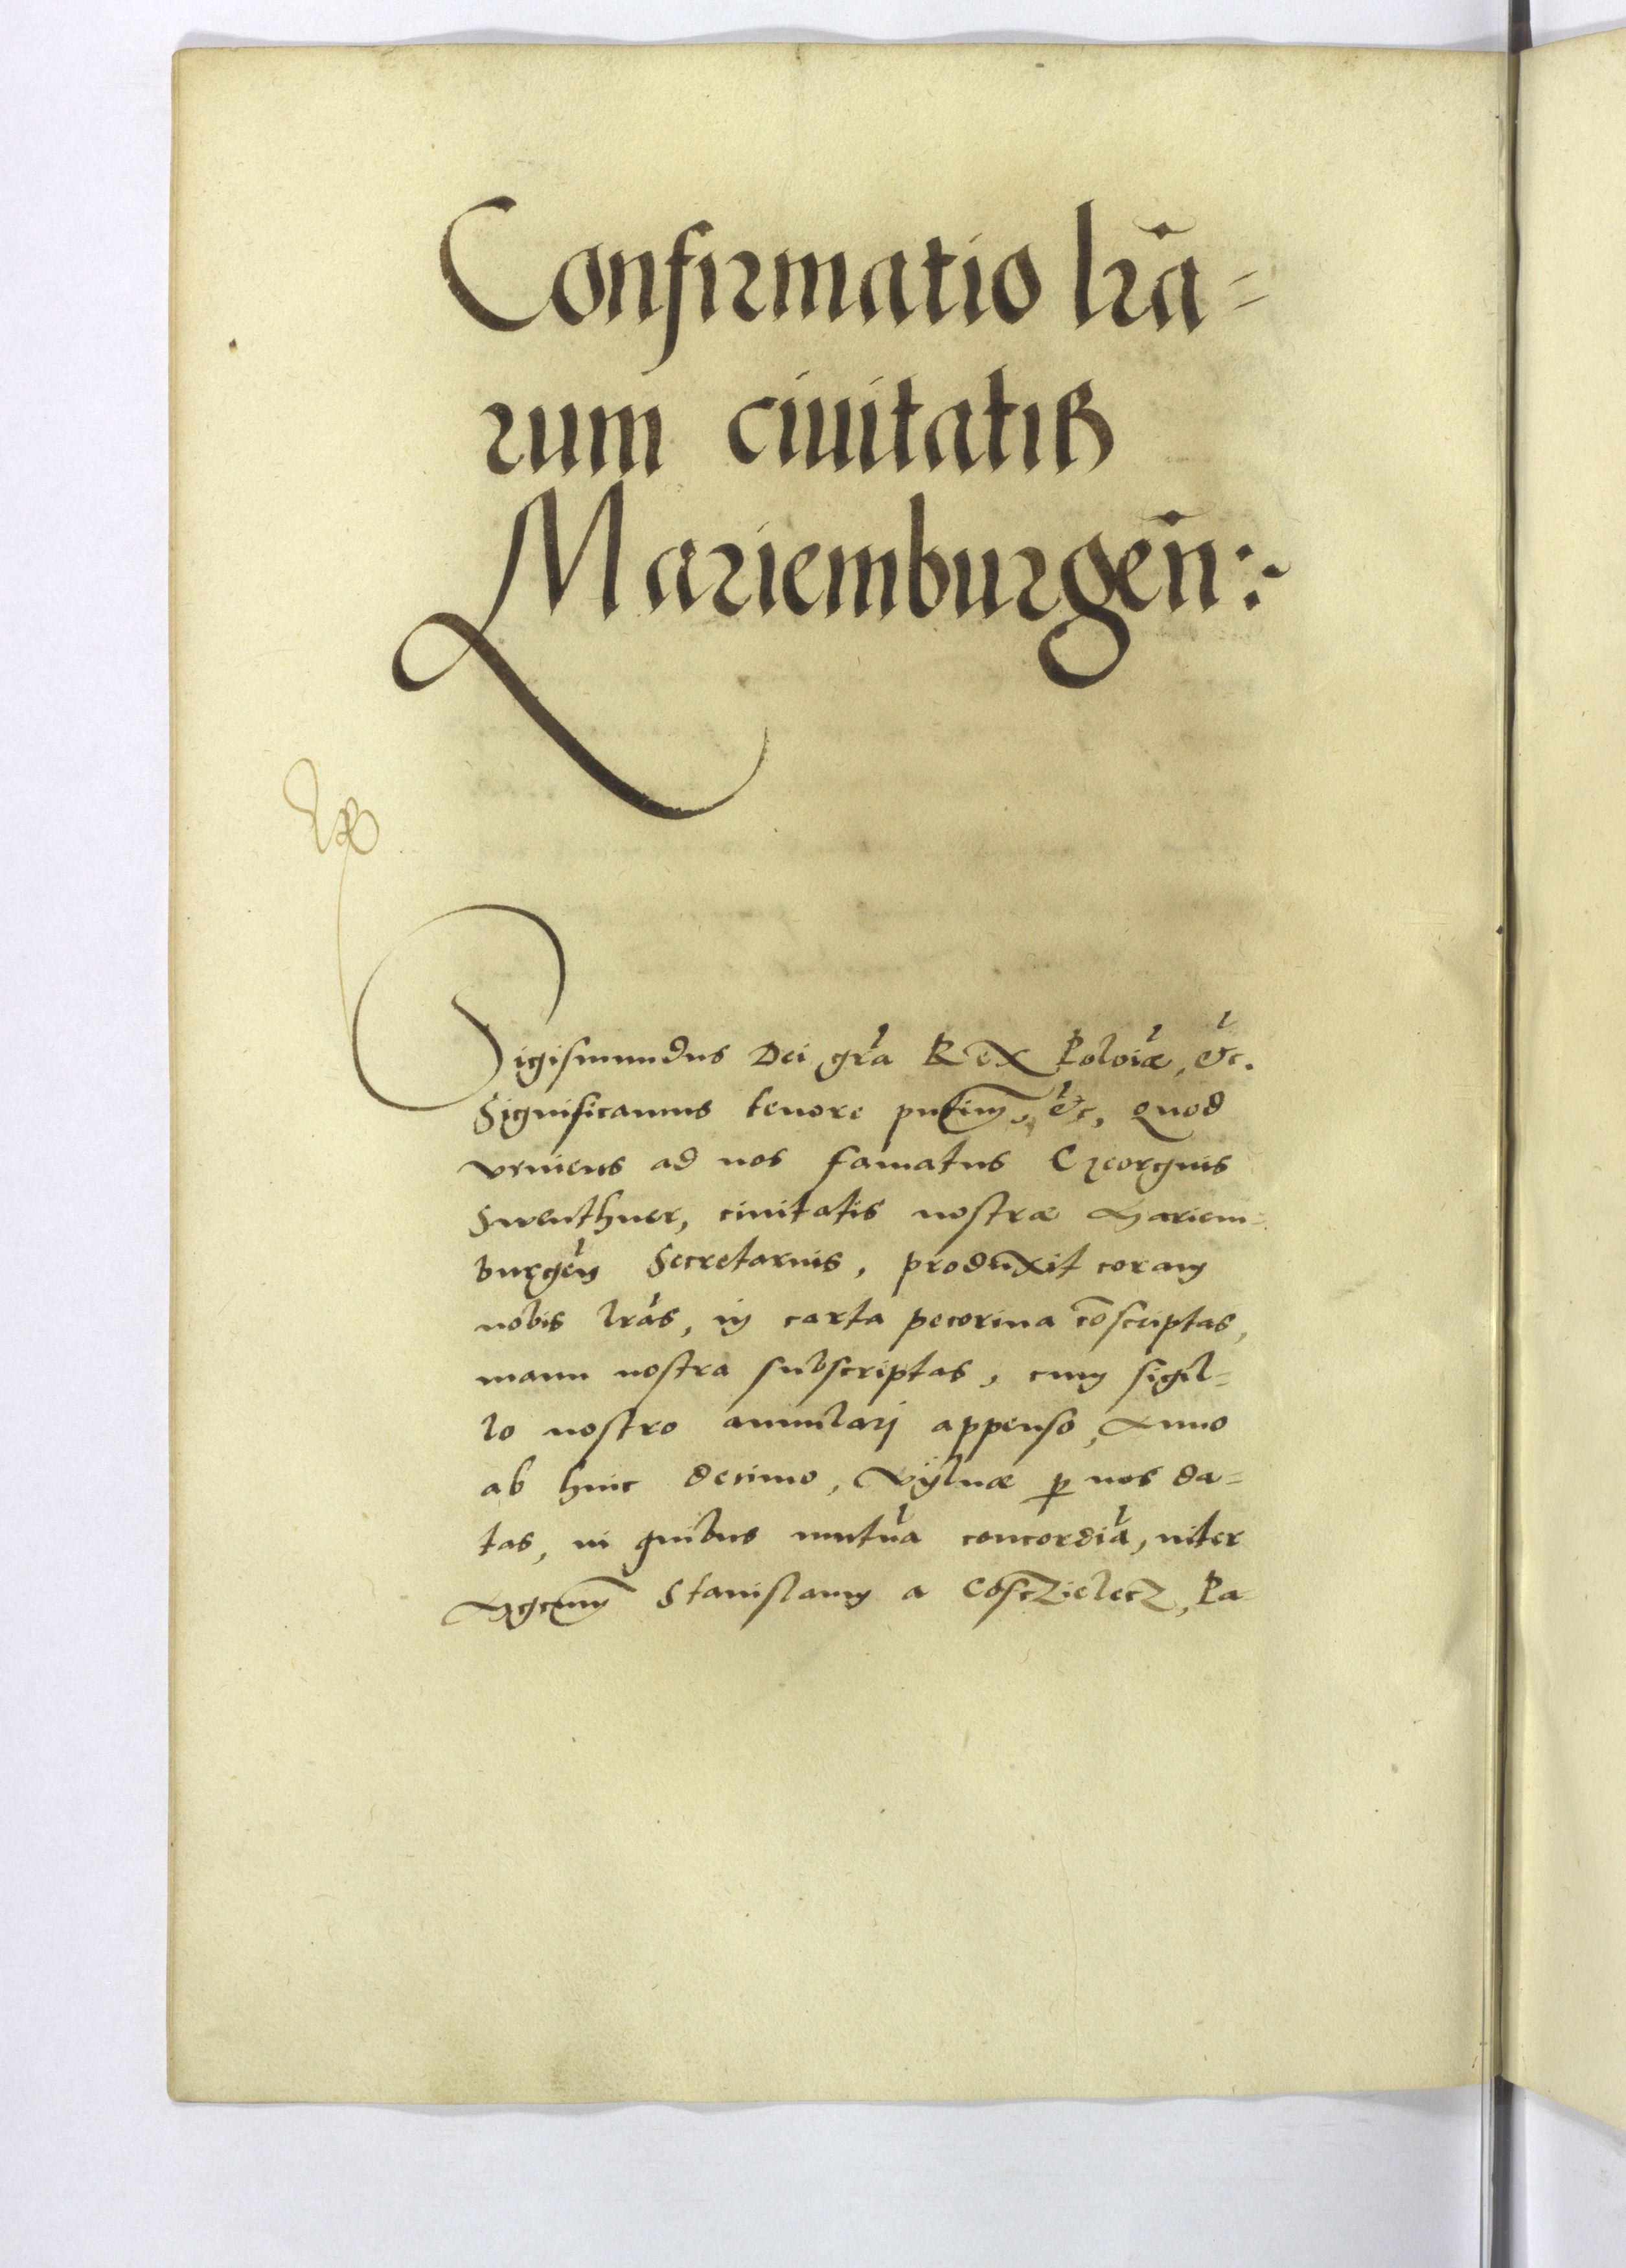 Confirmatio lrã=
rum ciuitatiß
Mariemburgeñ:
Sigismundus Dei gra̛ REX Polon̛iæ, etc.
Significamus tenore pn̄tium, etc, quod
veniens ad nos famatus Georgius
Swenthner, ciuitatis nostræ Mariem=
burgen̛ Secretarius, produxit coram
nobis lra̛s, in carta pecorina cōscriptas,
manu nostra subscriptas, cum sigil=
lo nostro annulari appenso, Anno
ab hinc decimo, Vylnæ ꝑ nos da=
tas, in quibus mutua̛ concordia̛, inter
Mgcum̄ Stanislaum a Cosczielecz, Pa